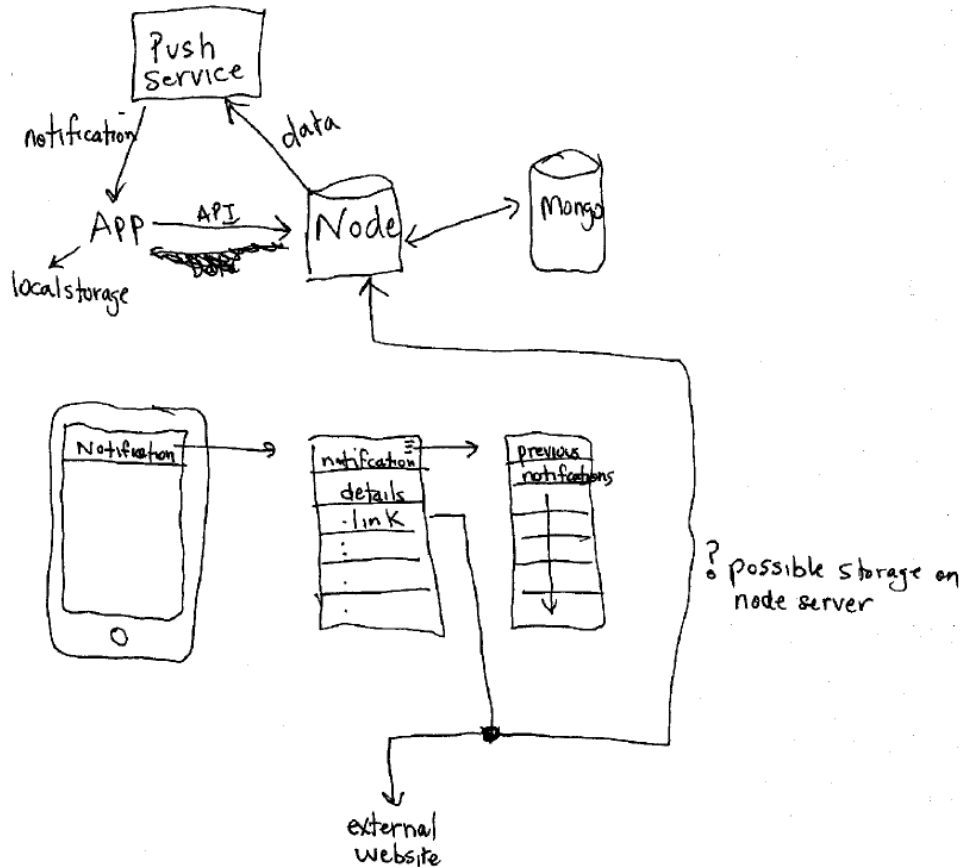 Push
Service
notification
data
App
API
Node
Mongo
localstorage
Notification
notifcation
details
.link
previous
notifcations
? possible storage on
node server
external
website